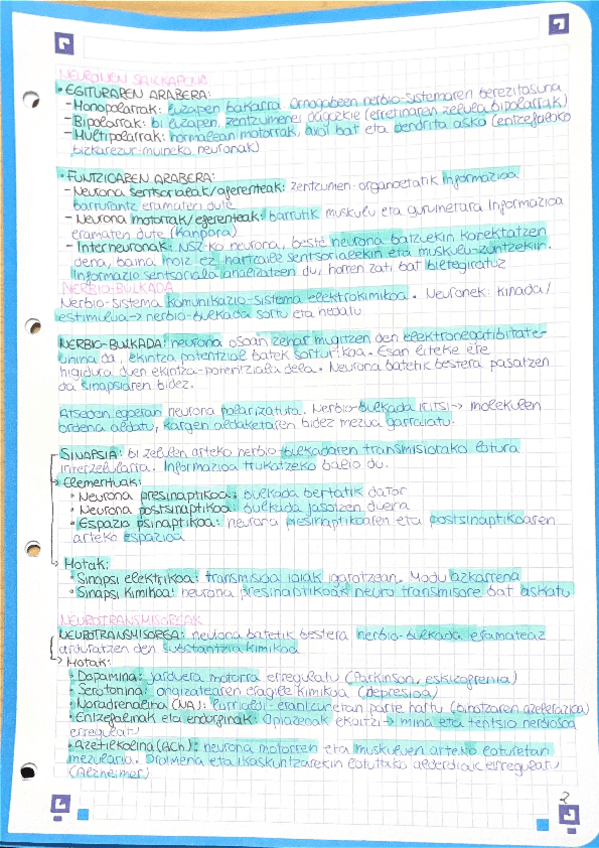 NEURONEN SAILKAPENA
• EGITURAREN ARABERA:
- Monopolarrak: luzapen bakarra. Ornogabeen nerbio-sistemaren berezitasuna
- Bipolarrak: bi luzapen, zentzumenei dagozkie (erretinaren zelula bipolarrak)
- Multipolarrak: normalean motorrak, axoi bat eta dendrita asko (entzefaloko
bizkarezur-muineko neuronak)
• FUNTZIOAREN ARABERA:
- Neurona sentsorialak/aferenteak: zentzumen-organoetatik informazioa
barrurantz eramaten dute
- Neurona motorrak/eferenteak: barrutik muskulu eta guruinetara informazioa
eramaten dute (kanpora)
- Interneuronak: NSZ-ko neurona, beste neurona batzuekin konektatzen
dena, baina inoiz ez hartzaile sentsorialekin eta muskulu-zuntzekin.
Informazio sentsoriala analizatzen du, horren zati bat biltegiratuz
NERBIO-BULKADA
Nerbio-sistema komunikazio-sistema elektrokimikoa. Neuronek: kinada/
estimulua → nerbio-bulkada sortu eta hedatu
NERBIO-BULKADA: neurona osoan zehar mugitzen den elektronegatibitate-
uhina da, ekintza potentzial batek sorturikoa. Esan liteke ere
higidura duen ekintza-potentziala dela. Neurona batetik bestera pasatzen
da sinapsiaren bidez.
Atseden egoeran neurona polarizatuta. Nerbio-bulkada iritsi → molekulen
ordena aldatu, kargen aldaketaren bidez mezua garraiatu.
SINAPSIA: bi zelulen arteko nerbio-bulkadaren transmisiorako lotura
interzelularra. Informazioa trukatzeko balio du.
Elementuak:
• Neurona presinaptikoa: bulkada bertatik dator
• Neurona postsinaptikoa: bulkada jasotzen duena
• Espazio psinaptikoa: neurona presinaptikoaren eta postsinaptikoaren
arteko espazioa
Motak:
• Sinapsi elektrikoa: transmisioa ioiak igarotzean. Modu azkarrena
• Sinapsi kimikoa: neurona presinaptikoak neurotransmisore bat askatu
NEUROTRANSMISOREAK
NEUROTRANSMISOREA: neurona batetik bestera nerbio-bulkada eramateaz
arduratzen den substantzia kimikoa
Motak:
• Dopamina: jarduera motorra erregulatu (Parkinson, eskizofrenia)
• Serotonina: ongizatearen eragile kimikoa (depresioa)
• Noradrenalina (NA): larrialdi-erantzunetan parte hartu (bihotzaren azelerazioa)
• Entzefalinak eta endorfinak: Opiazeoak ekoitzi → mina eta tentsio nerbiosoa
erregulatu
• Azetilkolina (ACh): neurona motorren eta muskuluen arteko loturetan
mezularia. Oroimena eta ikaskuntzarekin lotutako alderdiak erregulatu
(Alzheimer)
2